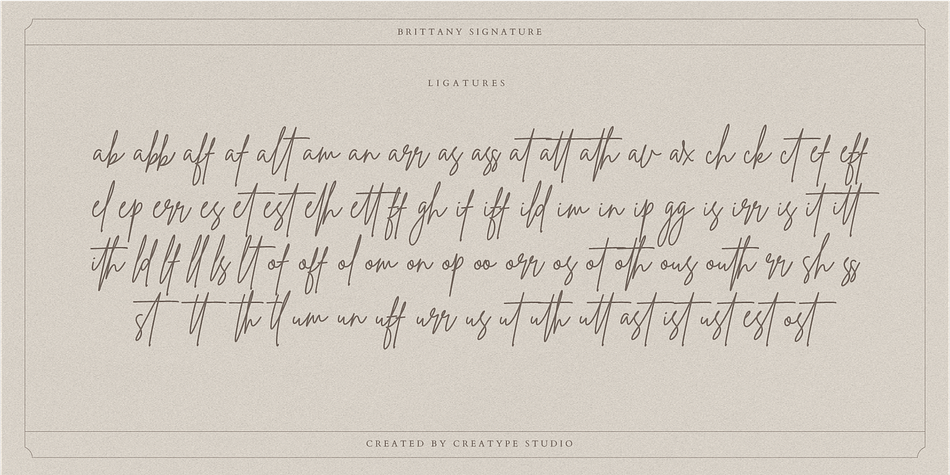 BRITTANY SIGNATURE
LIGATURES
ab abb aff af alt am an arr as ass at att ath av ax ch ck ct ef eff
el ep err es et est eth ett ff gh if iff ild im in ip gg is irr is it itt
ith ld lf ll ls lt of off ol om on op oo orr os ot oth ous outh rr sh ss
st tt th tl um un uff urr us ut uth utt ast ist ust est ost
CREATED BY CREATYPE STUDIO